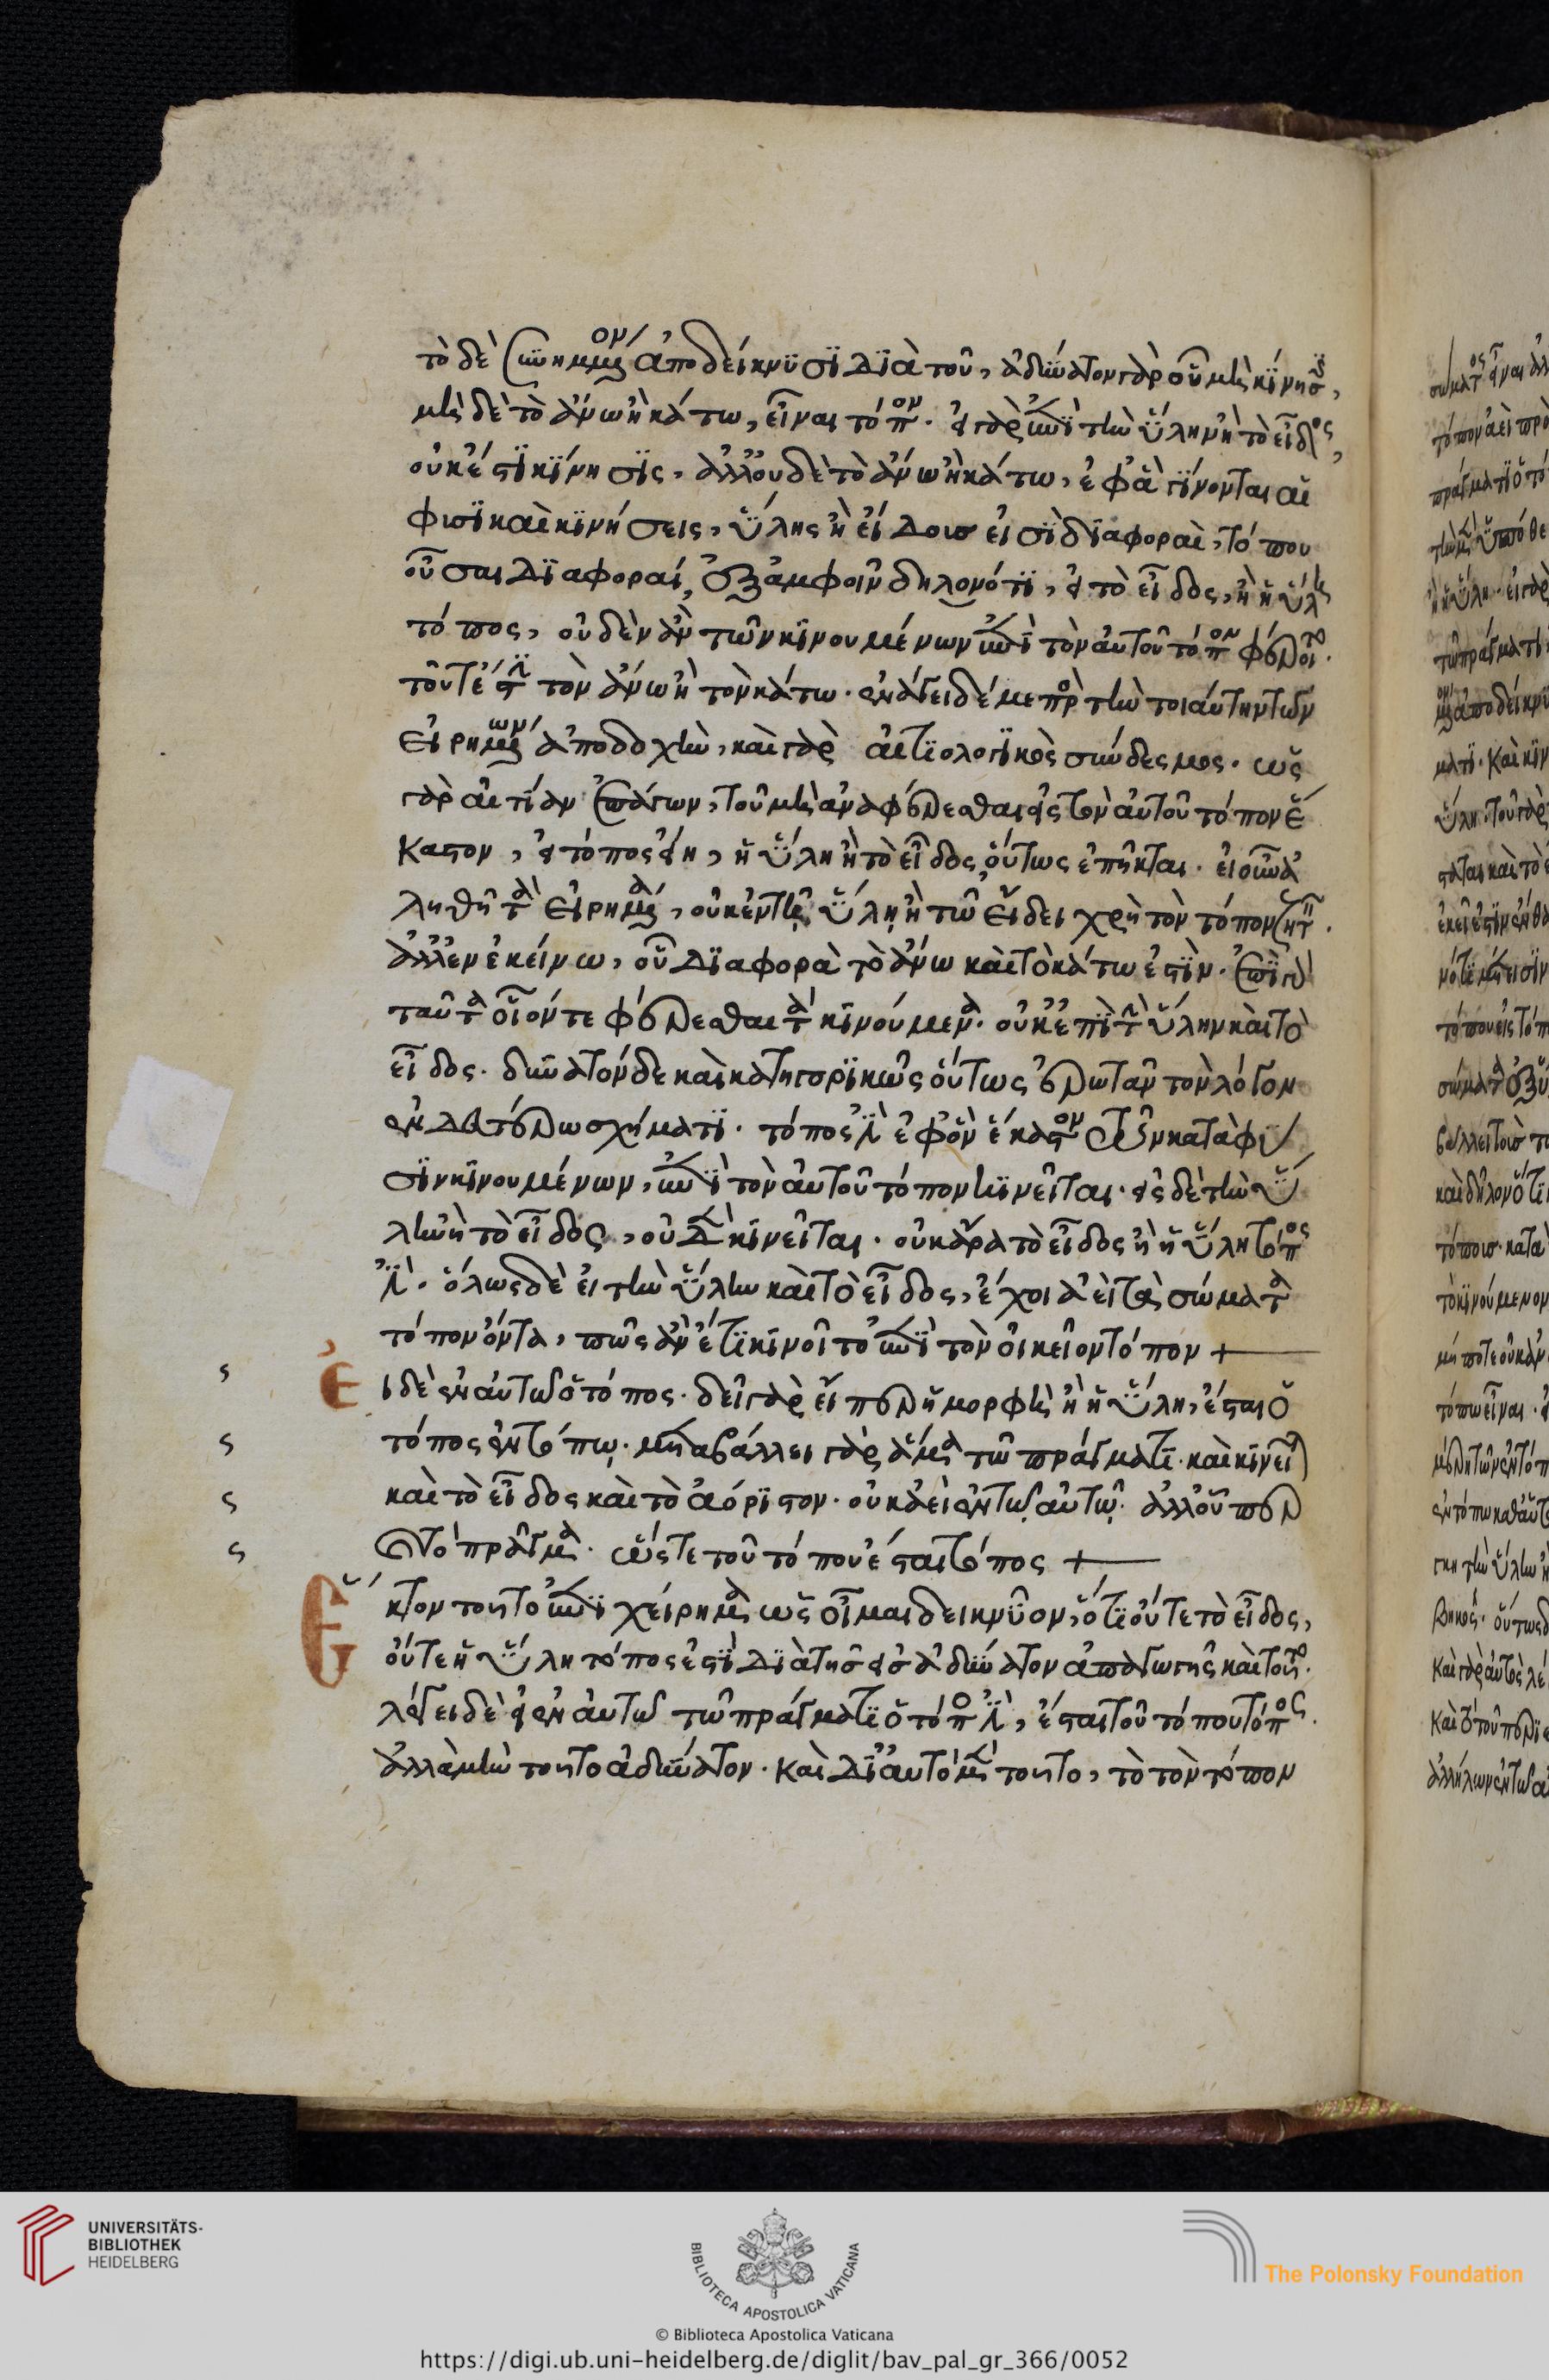 τὸ δὲ συνημμένον ἀποδείκνυσι διὰ τοῦ, ἀδύνατον γὰρ οὗ μὴ κίνησις,
μὴ δὲ τὸ ἄνω ἢ κάτω, εἶναι τόπον. εἰ γὰρ ἐπὶ τὴν ὕλην ἢ τὸ εἶδος,
οὐκ ἔστι κίνησις, ἀλλ' οὐδὲ τὸ ἄνω ἢ κάτω, ἐφ' ἃ γίνονται αἱ
φυσικαὶ κινήσεις, ὕλης ἢ εἴδους εἰσὶ διαφοραὶ, τόπου
οὖσαι διαφοραί, ἐξ ἀμφοῖν δηλονότι, εἰ τὸ εἶδος, ἢ ἡ ὕλη
τόπος, οὐδὲν ἂν τῶν κινουμένων ἐπὶ τὸν αὑτοῦ τόπον φέροιτο.
τουτέστι τὸν ἄνω ἢ τὸν κάτω. ἐνάγει δέ με πρὸς τὴν τοιαύτην τῶν
εἰρημένων ἀποδοχὴν, καὶ γὰρ αἰτιολογικὸς σύνδεσμος. ὡς
γὰρ αἰτίαν ἐπάγων, τοῦ μὴ ἀναφέρεσθαι εἰς τὸν αὑτοῦ τόπον ἕ
καστον, εἰ τόπος εἴη, ἡ ὕλη ἢ τὸ εἶδος, οὕτως ἐπῆκται. εἰ οὖν ἀ
ληθῆ τὰ εἰρημένα, οὐκ ἐν τῇ ὕλῃ ἢ τῷ εἴδει χρὴ τὸν τόπον ζητεῖν.
ἀλλ' ἐν ἐκείνω, οὗ διαφορὰ τὸ ἄνω καὶ τὸ κάτω ἐστίν. ἐπὶ γὰρ
ταῦτα οἷόν τε φέρεσθαι τὰ κινούμενα. οὐκ ἐπὶ τὴν ὕλην καὶ τὸ
εἶδος. δυνατὸν δὲ καὶ κατηγορικῶς οὕτως ἐρωτᾶν τὸν λόγον
ἐν δευτέρω σχήματι. τόπος ἐστὶ ἐφ' ὃν ἕκαστον τῶν κατὰ φύ
σιν κινουμένων, ἐπὶ τὸν αὑτοῦ τόπον κινεῖται. εἰς δὲ τὴν ὕ
λην ἢ τὸ εἶδος, οὐδὲν κινεῖται. οὐκ ἄρα τὸ εἶδος ἢ ἡ ὕλη τόπος
ἐστί. ὅλως δὲ εἰ τὴν ὕλην καὶ τὸ εἶδος, ἔχοι ἀεὶ τὰ σώματα
τόπον ὄντα, πῶς ἂν ἔτι κινοῖτο ἐπὶ τὸν οἰκεῖον τόπον +
Εἰ δὲ ἐν αὐτῷ ὁ τόπος. δεῖ γὰρ εἴπερ ἡ μορφὴ ἢ ἡ ὕλη, ἔσται ὁ
τόπος ἐν τόπῳ. μεταβάλλει γὰρ ἅμα τῷ πράγματι. καὶ κινεῖται
καὶ τὸ εἶδος καὶ τὸ ἀόριστον. οὐκ ἀεὶ ἐν τῷ αὐτῷ. ἀλλ' οὗπερ
καὶ τὸ πρᾶγμα. ὥστε τοῦ τόπου ἔσται τόπος +
Ἕκτον τοῦτο ἐπιχείρημα ὡς οἶμαι δεικνύον, ὅτι οὔτε τὸ εἶδος,
οὔτε ἡ ὕλη τόπος ἐστὶ διὰ τῆς εἰς ἀδύνατον ἀπαγωγῆς καὶ τοῦτο.
λέγει δὲ εἰ ἐν αὐτῷ τῷ πράγματι ὁ τόπος ἐστί, ἔσται τοῦ τόπου τόπος.
ἀλλὰ μὴν τοῦτο ἀδύνατον. καὶ δι' αὐτὸ μὲν τοῦτο, τὸ τὸν τόπον
UNIVERSITÄTS-
BIBLIOTHEK
HEIDELBERG
BIBLIOTECA APOSTOLICA VATICANA
The Polonsky Foundation
© Biblioteca Apostolica Vaticana
https://digi.ub.uni-heidelberg.de/diglit/bav_pal_gr_366/0052